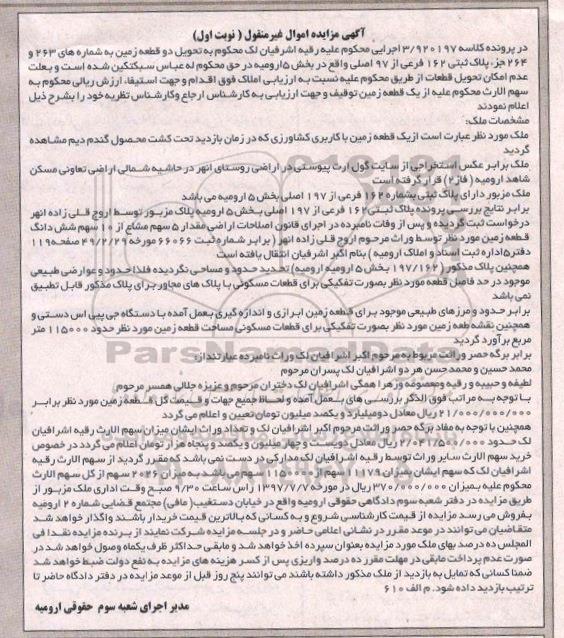 آگهی مزایده اموال غیر منقول ( نوبت اول )
در پرونده کلاسه ۳/۹۲۰۱۹۷ اجرایی محکوم علیه رقیه اشرفیان لک محکوم به تحویل دو قطعه زمین به شماره های ۲۶۳ و
۲۶۴ جزء پلاک ثبتی ۱۶۲ فرعی از ۹۷ اصلی واقع در بخش ۵ ارومیه در حق محکوم له عباس سبکتکین شده است و بعلت
عدم امکان تحویل قطعات از طریق محکوم علیه نسبت به ارزیابی املاک فوق اقدام و جهت استیفاء ارزش ریالی محکوم به
سهم الارث محکوم علیه از یک قطعه زمین توقیف و جهت ارزیابی به کارشناس ارجاع و کارشناس نظریه خود را بشرح ذیل
اعلام نمودند
مشخصات ملک:
ملک مورد نظر عبارت است از یک قطعه زمین با کاربری کشاورزی که در زمان بازدید تحت کشت محصول گندم دیم مشاهده
گردید
ملک برابر عکس استخراجی از سایت گول ارت پیوستی در اراضی روستای انهر در حاشیه شمالی اراضی تعاونی مسکن
شاهد ارومیه ( فاز ۲) قرار گرفته است
ملک مزبور دارای پلاک ثبتی بشماره ۱۶۲ فرعی از ۱۹۷ اصلی بخش ۵ ارومیه می باشد
برابر نتایج بررسی پرونده پلاک ثبتی ۱۶۲ فرعی از ۱۹۷ اصلی بخش ۵ ارومیه پلاک مزبور توسط اروج قلی زاده انهر
درخواست ثبت گردیده و پس از وفات نامبرده در اجرای قانون اصلاحات اراضی مقدار ۵ سهم مشاع از ۱۰ سهم شش دانگ
قطعه زمین مورد نظر توسط وراث مرحوم اروج قلی زاده انهر ( برابر شماره ثبت ۶۶۰۶۶ مورخه ۴۹/۲/۲۹ صفحه ۱۱۹
دفتر ۵ اداره ثبت اسناد و املاک ارومیه ) بنام اکبر اشرفیان انتقال یافته است
همچنین پلاک مذکور ( ۱۹۷/۱۶۲ بخش ۵ ارومیه ارومیه) تحدید حدود و مساحی نگردیده فلذا حدود و عوارضی طبیعی
موجود در حد فاصل قطعه مورد نظر بصورت تفکیکی برای قطعات مسکونی با پلاک های مجاور برای پلاک مذکور قابل تطبیق
نمی باشد
برابر حدود و مرزهای طبیعی موجود برای قطعه زمین ابرازی و اندازه گیری بعمل آمده با دستگاه جی پی اس دستی و
همچنین نقشه قطعه زمین مورد نظر بصورت تفکیکی برای قطعات مسکونی مساحت قطعه زمین مورد نظر حدود ۱۱۵۰۰۰ متر
مربع برآورد گردید
برابر برگه حصر وراثت مربوط به مرحوم اکبر اشرفیان لک وراث نامبرده عبارتند از
محمد حسین و محمد حسن هر دو اشرفیان لک پسران مرحوم
لطیفه و حبیبه و رقیه و معصومه و زهرا همگی اشرفیان لک دختران مرحوم و عزیزه جلالی همسر مرحوم
با توجه به مراتب فوق الذکر بررسی های بعمل آمده و لحاظ جمیع جهات و قیمت کل قطعه زمین مورد نظر برابر
۲۱/۰۰۰/۰۰۰/۰۰۰ ریال معادل دو میلیارد و یکصد میلیون تومان تعیین و اعلام می گردد
همچنین با توجه به مفاد برگه حصر وراثت مرحوم اکبر اشرفیان لک و تعداد وراث ایشان میزان سهم الارث رقیه اشرفیان
لک حدود ۲/۰۴۱/۵۰۰/۰۰۰ ریال معادل دویست و چهار میلیون و یکصد و پنجاه هزار تومان اعلام می گردد در خصوص
خرید سهم الارث سایر وراث توسط رقیه اشرفیان لک مدارکی در دست نمی باشد که مقرر گردید از سهم الارث رقیه
اشرفیان لک که سهم ایشان بمیزان ۱۱۱۷۹ سهم از ۱۱۵۰۰۰ سهم می باشد به میزان ۲۰۲۶ سهم از کل سهم الارث
محکوم علیه بمیزان ۳۷۰/۰۰۰/۰۰۰ ریال در مورخه ۱۳۹۷/۷/۷ راس ساعت ۹/۳۰ صبح وقت اداری ملک مزبور از
طریق مزایده در دفتر شعبه سوم دادگاهی حقوقی ارومیه واقع در خیابان دستغیب( مافی) مجتمع قضایی شماره ۲ ارومیه
بفروش می رسد مزایده از قیمت کارشناسی شروع و به کسانی که بالاترین قیمت خریدار باشند واگذار خواهد شد
متقاضیان می توانند در موعد مقرر در نشانی اعلامی حاضر و در جلسه مزایده شرکت نمایند از برنده مزایده نقدا فی
المجلس ده درصد بهای ملک مورد مزایده بعنوان سپرده اخذ خواهد شد و مابقی حداکثر ظرف یکماه وصول خواهد شد در
صورت عدم پرداخت مابقی در مهلت مقرر ده درصد واریزی پس از کسر هزینه های مزایده به نفع دولت ضبط خواهد شد
ضمنا کسانی که تمایل به بازدید از ملک مذکور داشته باشند می توانند پنج روز قبل از موعد مزایده در دفتر دادگاه حاضر تا
ترتیب بازدید داده شود. م الف ۶۱۰
مدیر اجرای شعبه سوم حقوقی ارومیه
ParsNamadData